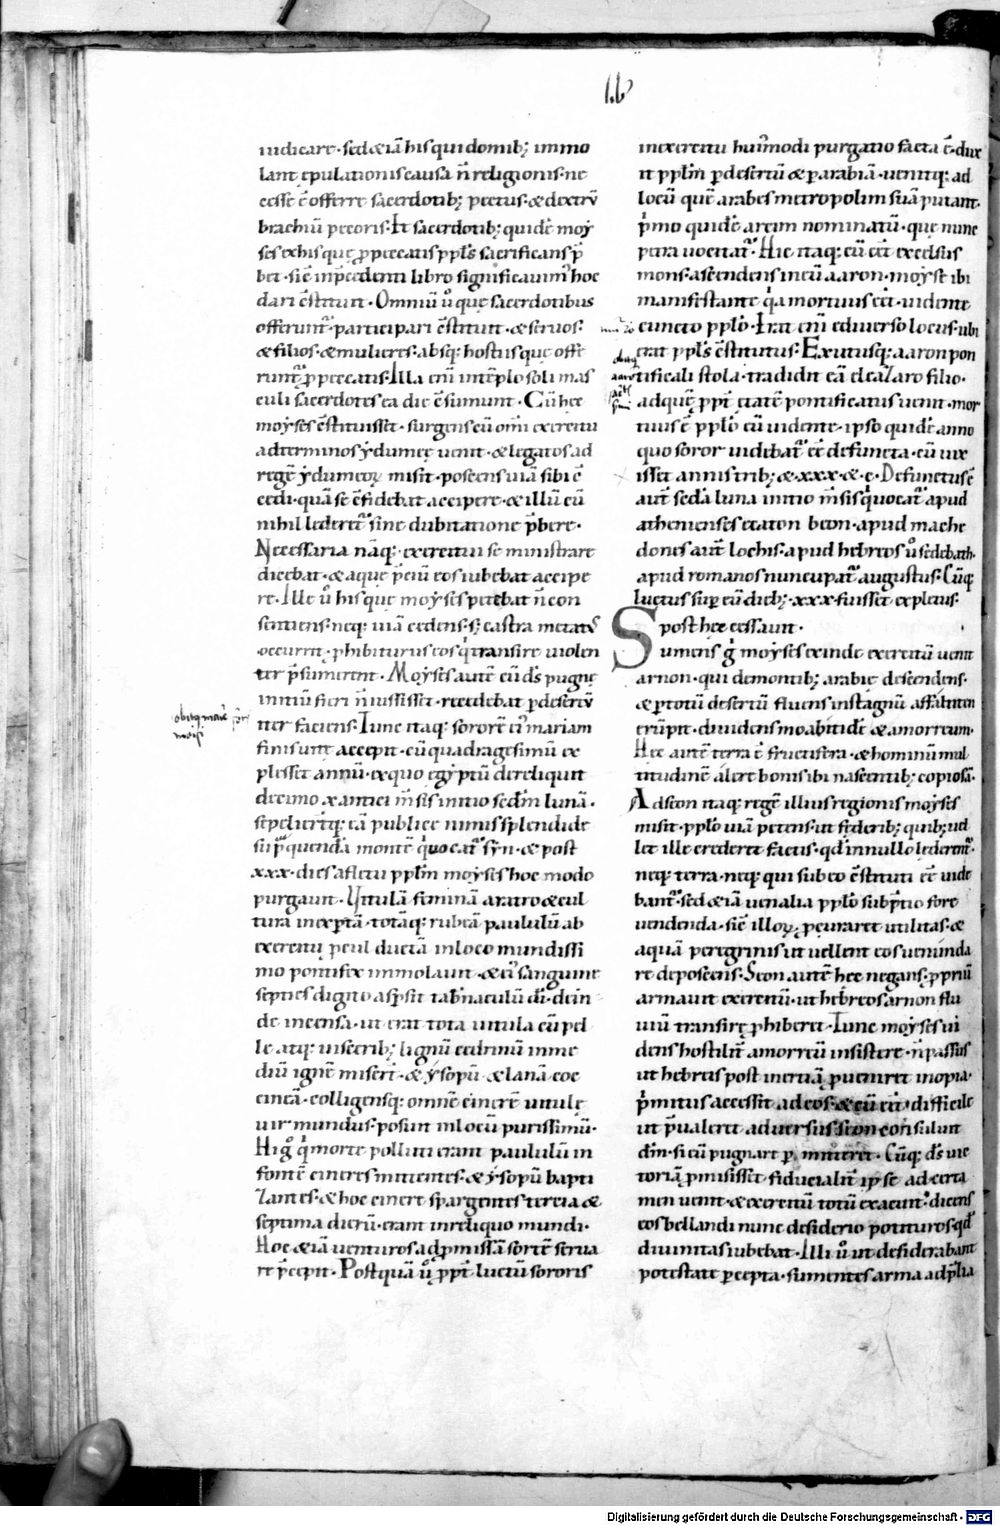 l. b
iudicare · sed & iā his qui domib; immo
lant ępulationis causa n̄ religionis · ne
cesse ē offerre sacerdotib; pectus · & dextrū
brachiū pecoris · Et sacerdotib; quidē moy
ses ex his quę p̱ peccatis ppl̄s sacrificans p̄
bet · sic̄ in p̄cedenti libro significauim᷒ hoc
dari c̄stituit · Omniū ů quę sacerdotibus
offerunt᷒ · participari c̄stituit · & seruos ·
& filios · & mulieres · absq; hostiis quę offe
runt᷒ p̱ peccatis · Illa eni᷒ in tēplo soli mas
culi sacerdotes ea die c̄sumunt · Cū hęc
moyses c̄stituisset · surgens cū om̄i exercitu
ad terminos ydumeę uenit · & legatos ad
regē ydumeoꝝ misit · poscens uiā sibi c̄
cedi · quā se c̄fidebat accipere · & illū cū
nihil lederet᷒ sine dubitatione p̄bere ·
Necessaria nāq; · exercitui se ministrare
dicebat · & aquę p̄ciū eos iubebat accipe
re · Ille ů his quę moyses petebat n̄ con
sentiens · neq; uiā cedens · s; castra metat᷒
occurrit · p̱hibiturus eos q̇ transire uiolen
ter p̄sumerent · Moyses autē cū d̄s pugnę
initiū fieri n̄ iussisset · recedebat p̱ desertū
iter faciens · Tunc itaq; sororē ei᷒ mariam
finis uitę accepit · cū quadragesimū ex
plesset annū · ex quo egyptū dereliquit
decimo xantici m̄sis initio sed̄m lunā ·
sepelierūtq; eā publice nimis splendide
sup̱ quendā montē q̇ uocat᷒ syn · & post
xxx · dies a fletu ppl̄m moyses hoc modo
purgauit · Vitulā feminā aratro & cul
tura inexp̱tā · totāq; rubeā paululū ab
exercitu p̱cul ductā in loco mundissi
mo pontifex immolauit · & ei᷒ sanguine
septies digito asp̱sit tab̄naculū dī · dein
de incensa · ut erat tota uitula cū pel
le atq; uiscerib; lignū cedrinū in me
diū ignē miser̄t · & ysopū & lanā coc
cineā · colligensq; omnē cinerē uitulę
uir mundus · posuit in locū purissimū ·
Higi̊ q̇ morte polluti erant paululū in
fontē cineres mittentes · & ysopū bapti
zantes · & hoc cinere spargentes tercia &
septima dierū · erant in reliquo mundi ·
Hoc & iā uenturos ad p̱missā sortē serua
re p̄cepit · Postquā ů p̱pt᷒ luctū sororis
in exercitu hui᷒modi purgatio facta ē · dux
it ppl̄m p̱ desertū & p̱ arabiā · uenitq; ad
locū quē arabes metropolim suā putant ·
p̄mo quidē arcim nominatū · quę nunc
petra uocitat᷒ · Hic itaq; cū eet̄ excelsus
mons · ascendens in eū aaron · moyse ibi
manifestante q̇a moriturus eet̄ · uidente
cuncto pplo̊ · Erat eni᷒ e diuerso locus · ubi
erat ppl̄s c̄stitutus · Exutusq; aaron pon
tificali stola · tradidit eā eleazaro filio ·
ad quē p̱pt᷒ ętatē pontificatus uenit · mor
tuus ē pplo̊ cū uidente · ipso quidē anno
quo soror uidebat᷒ ee̅ defuncta · cū uix
isset annis trib; & · xxx · & · c · Defunctus ē
aut̄ sed̄a luna initio m̄sis q̇ uocat᷒ apud
athenienses ecaton beon · apud mache
dones aut̄ lochis · apud hebreos ů sedebath ·
apud romanos nuncupat᷒ augustus · Cūq;
luctus sup̱ eū dieb; · xxx · fuisset expletus ·
post hęc cessauit ·
Sumens g̊ moyses exinde exercitū uenit
arnon · qui de montib; arabię descendens ·
& p̱ totū desertū fluens in stagnū asfaltiten
erūpit · diuidens moabitidē & amorreum ·
Hęc autē terra ē fructifera · & hominū mul
titudinē alere bonis ibi nascentib; copiosa ·
Ad seon itaq; regē illius regionis moyses
misit · pplo̊ uiā petens · ut fęderib; quib; ud
let ille crederet factis · qd̄ in nullo lęderent᷒ ·
neq; terra · neq; qui sub eo c̄stituti ee̅ uide
bant᷒ · sed & iā uenalia pplo̊ sub p̄tio fore
uendenda · sic̄ illoꝝ p̱curaret utilitas · &
aquā peregrinis ut uellent eos ueninda
re deposcens · Seon autē hęc negans · p̱priū
armauit exercitū · ut hebreos arnon flu
uiū transirę p̱hiberet · Tunc moyses ui
dens hostilit̄ amorreū insistere · n̄ passus
ut hebreis post inertiā p̱ueniret inopia ·
p̄mitus accessit ad eos · & cū eet̄ difficile
ut p̄ualeret aduersus seon · consuluit
dm̄ · si cū pugnare p̱mitteret · Cūq; d̄s uic
toriā p̱misisset · fiducialit̄ ipse ad certa
men uenit · & exercitū totū exacuit᷒ · dicens
eos bellandi nunc desiderio potituros · qd̄
diuinitas iubebat · Illi ů ut desiderabant
potestate p̱cepta · sumentes arma ad p̱lia
Digitalisierung gefördert durch die Deutsche Forschungsgemeinschaft · DFG